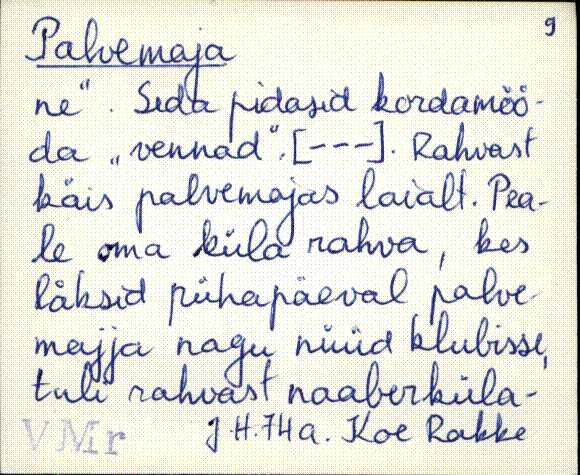 9
Palvemaja
ne". Seda pidasid kordamöö-
da „vennad". [---]. Rahvast
käis palvemajas laialt. Pea-
le oma küla rahva, kes
läksid pühapäeval palve-
majja nagu nüüd klubisse,
tuli rahvast naaberküla-
VMr J.H. 74 a. Koe Rakke